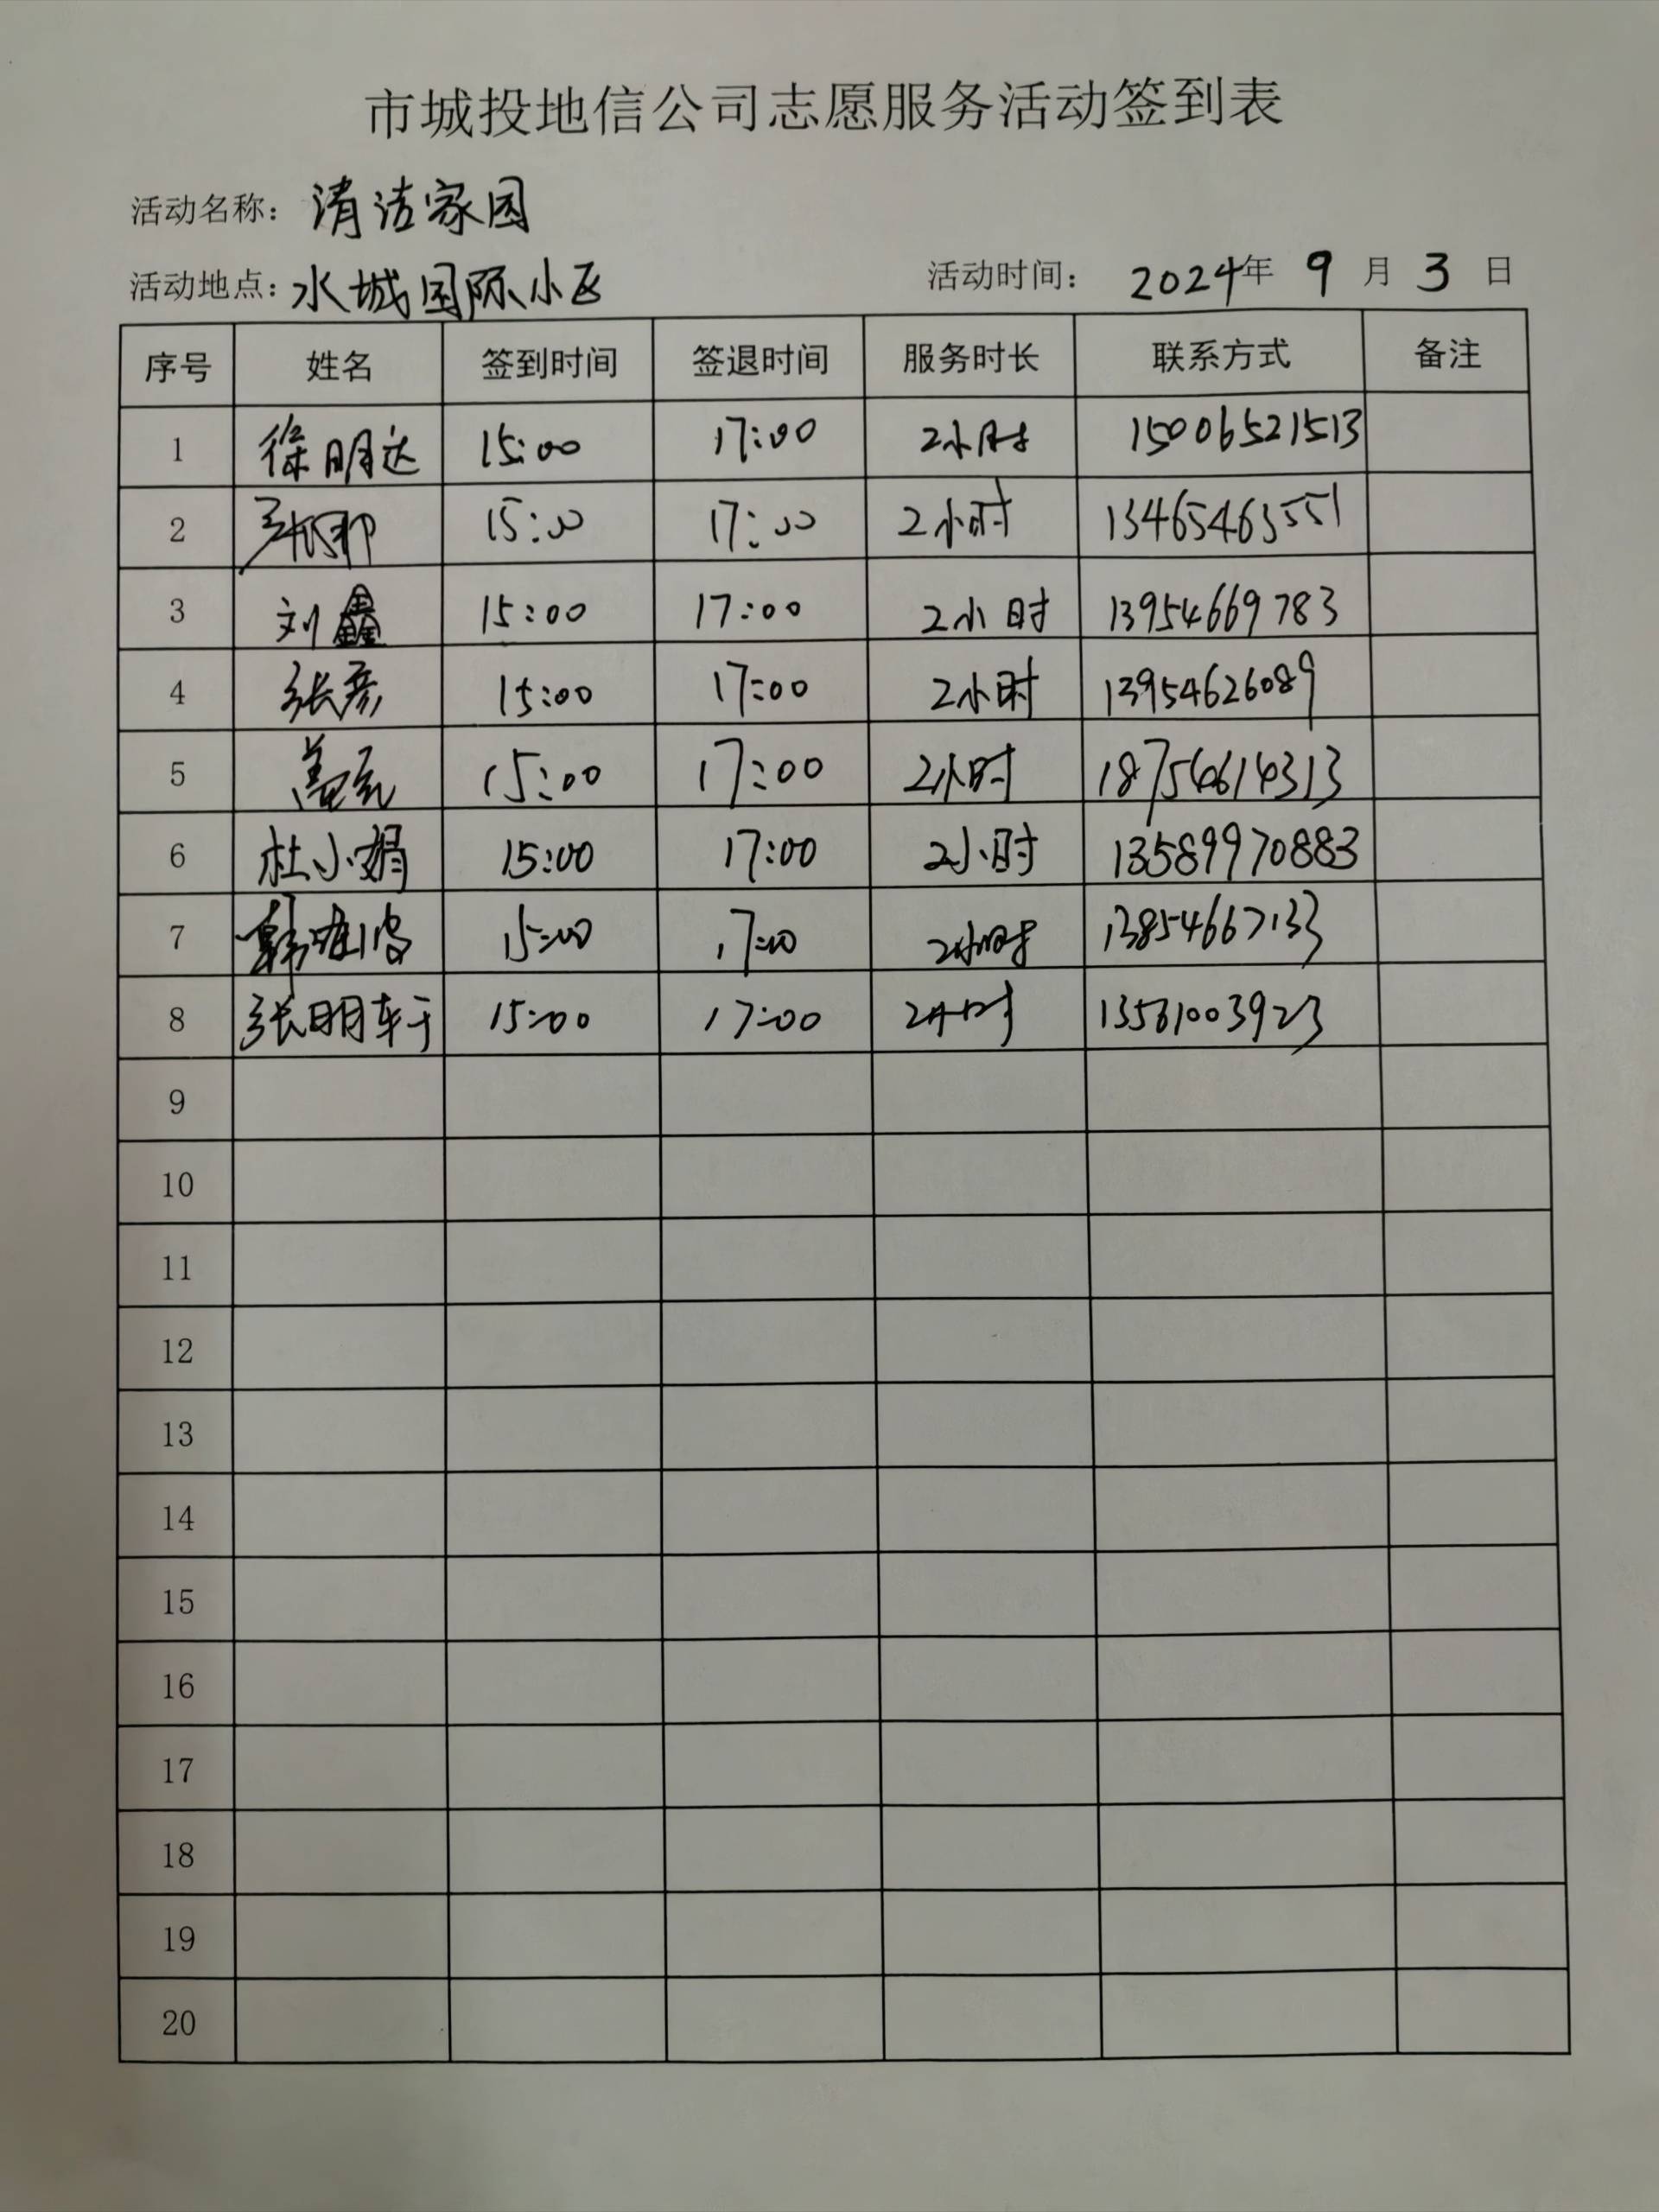 市城投地信公司志愿服务活动签到表
活动名称：清洁家园
活动地点：水城国际小区 活动时间： 2024年 9 月 3 日
序号 姓名 签到时间 签退时间 服务时长 联系方式 备注
1 徐明达 15:00 17:00 2小时 15006521513
2 15:00 17:00 2小时 13465463551
3 刘鑫 15:00 17:00 2小时 13954669783
4 张彦 15:00 17:00 2小时 13954626089
5 盖亮 15:00 17:00 2小时 18754614313
6 杜小娟 15:00 17:00 2小时 13589970883
7 15:00 17:00 2小时 13854667133
8 张明轩 15:00 17:00 2小时 13561003923
9
10
11
12
13
14
15
16
17
18
19
20